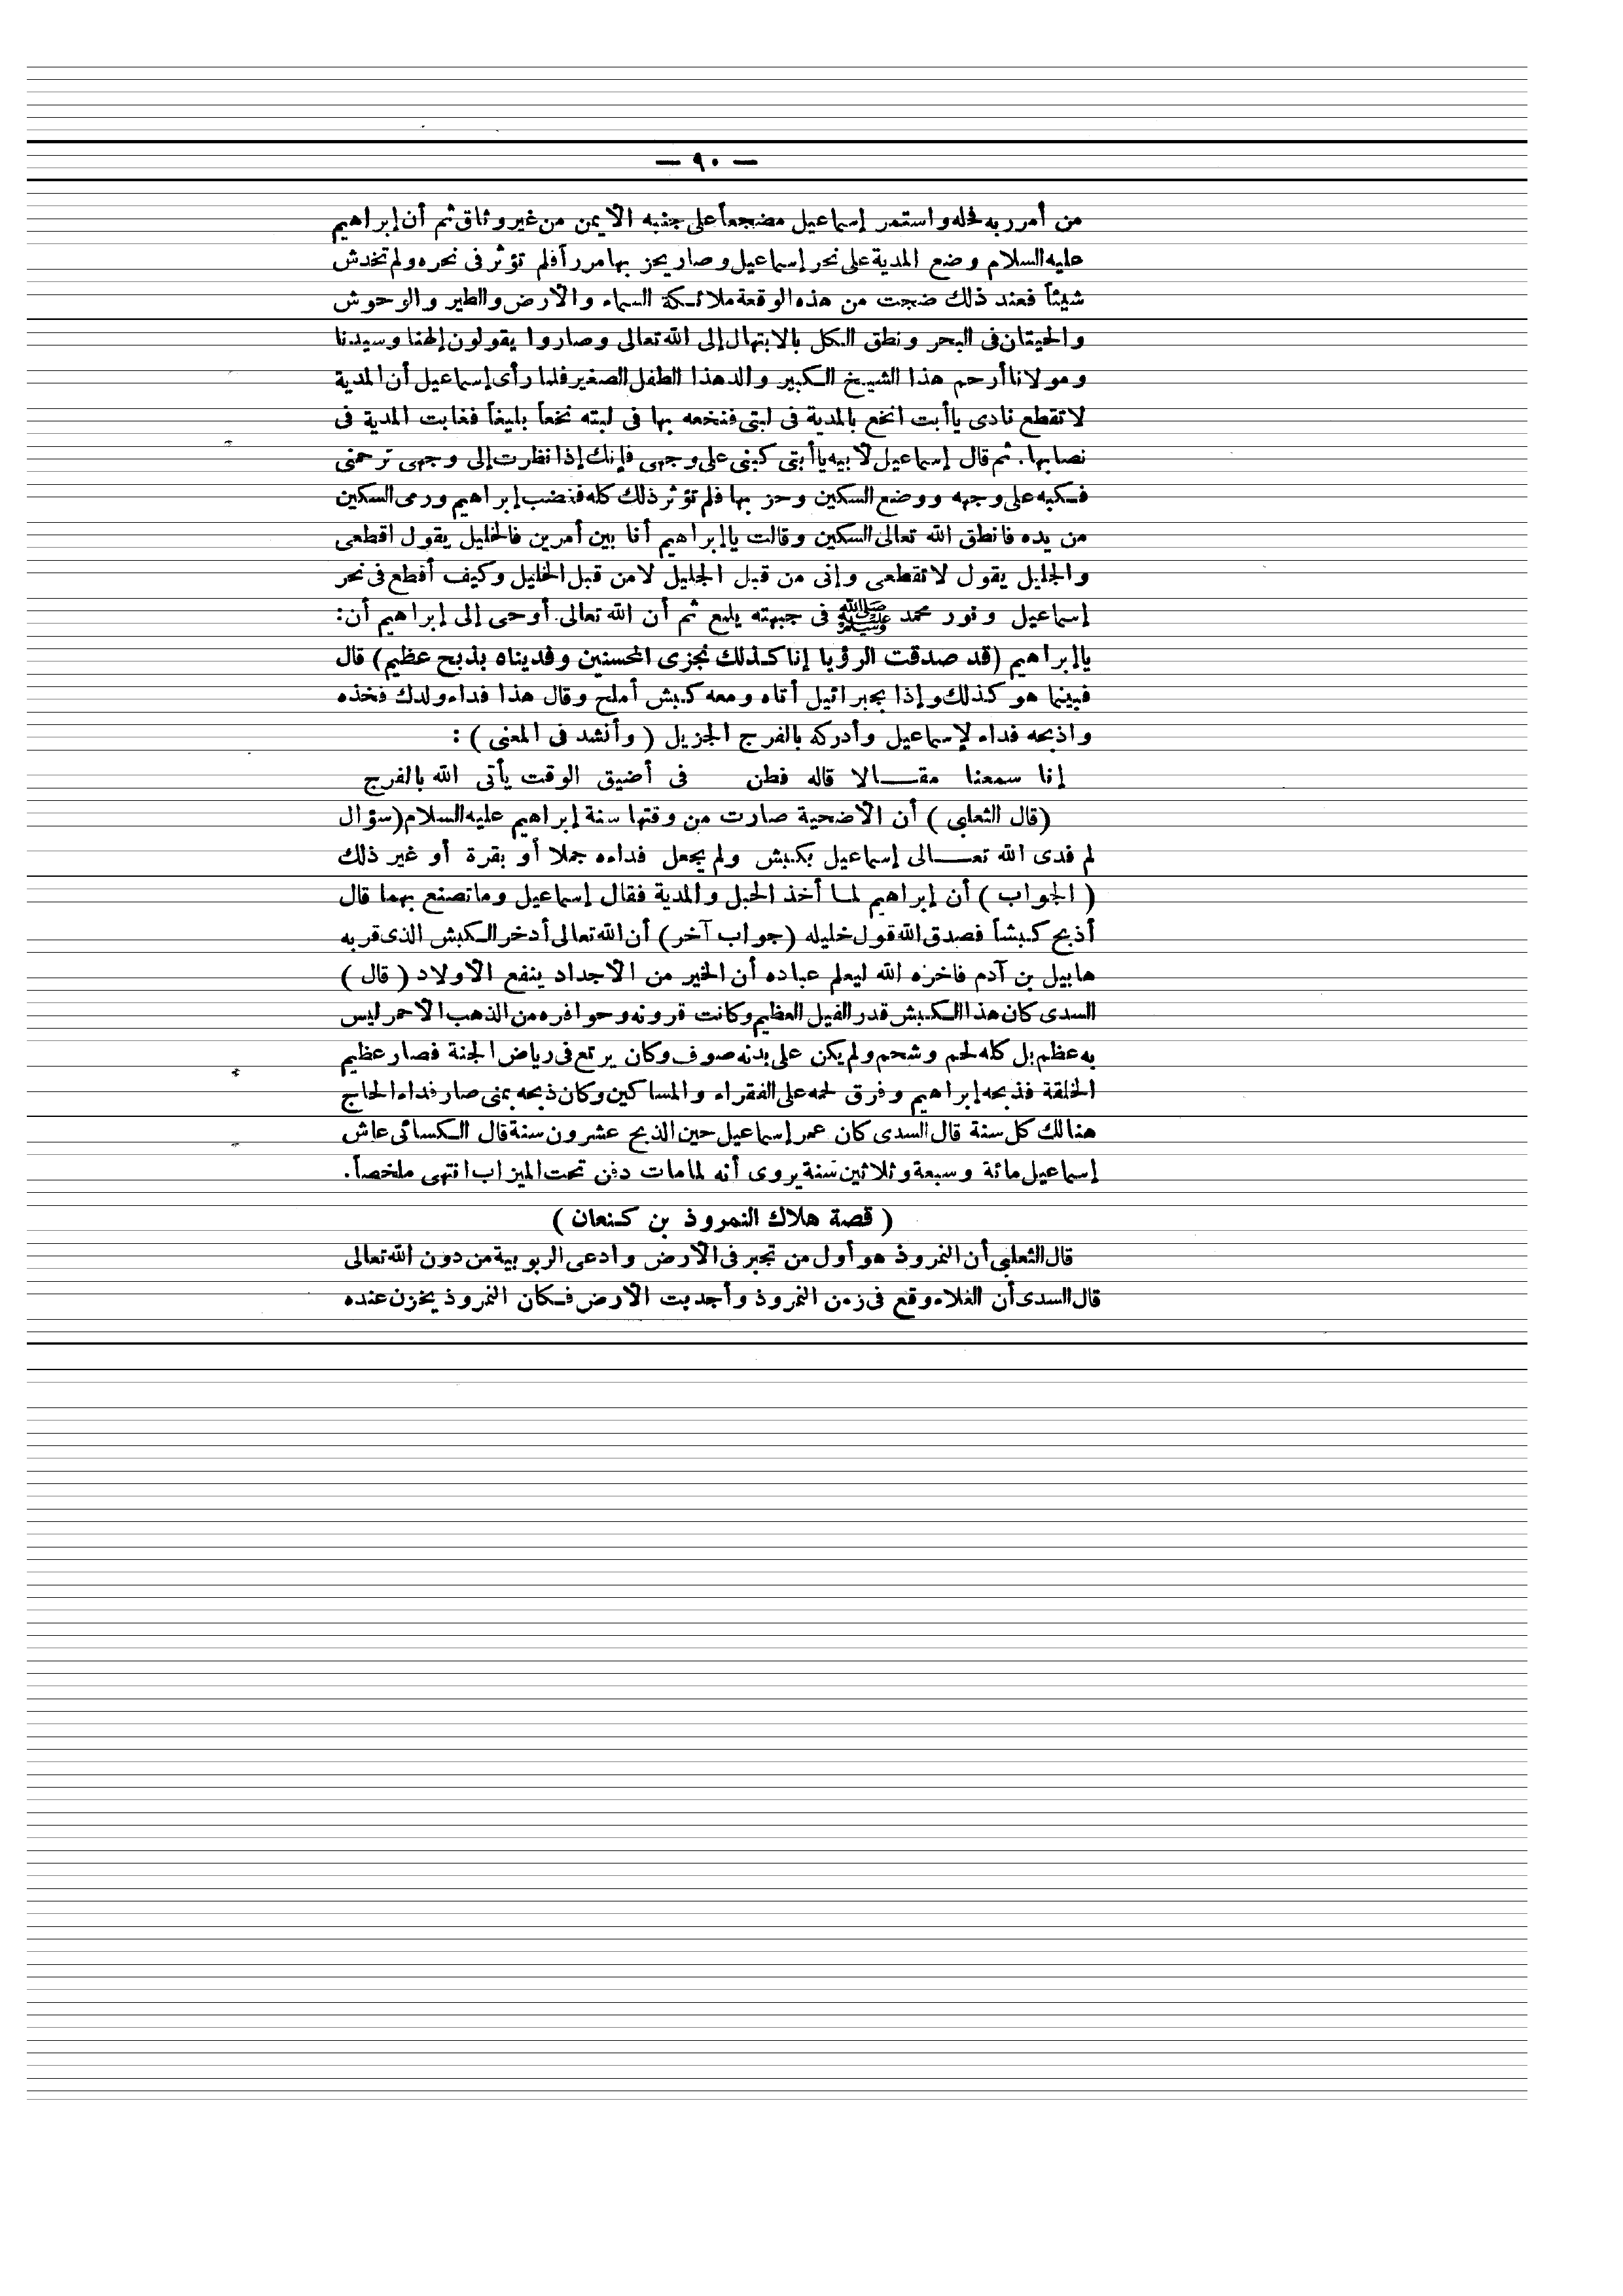 — ٩٠ —
من أمرر به فحله واستمر إسماعيل مضجعاً على جنبه الأيمن من غير وثاق ثم أن إبراهيم
عليه السلام وضع المدية على نحر إسماعيل وصار يحز بها مرراً فلم تؤثر فى نحره ولم تخدش
شيئاً فعند ذلك ضجت من هذه الوقعة ملائكة السماء والأرض والطير والوحوش
والحيتان فى البحر ونطق الكل بالابتهال إلى الله تعالى وصاروا يقولون إلهنا وسيدنا
ومولانا أرحم هذا الشيخ الكبير والد هذا الطفل الصغير فلما رأى إسماعيل أن المدية
لا تقطع نادى ياأبت انخع بالمدية فى لبتى فنخعه بها فى لبته نخعاً بليغاً فغابت المدية فى
نصابها. ثم قال إسماعيل لأبيه ياأبتى كبنى على وجهى فإنك إذا نظرت إلى وجهى ترحمنى
فكبه على وجهه ووضع السكين وحز بها فلم تؤثر ذلك كله فغضب إبراهيم ورمى السكين
من يده فانطق الله تعالى السكين وقالت ياإبراهيم أنا بين أمرين فالخليل يقول اقطعى
والجليل يقول لا تقطعى وإنى من قبل الجليل لا من قبل الخليل وكيف أقطع فى نحر
إسماعيل ونور محمد ﷺ فى جبهته يلمع ثم أن الله تعالى أوحى إلى إبراهيم أن:
ياإبراهيم (قد صدقت الرؤيا إنا كذلك نجزى المحسنين وفديناه بذبح عظيم) قال
فبينما هو كذلك وإذا بجبرائيل أتاه ومعه كبش أملح وقال هذا فداء ولدك فخذه
واذبحه فداء لإسماعيل وأدركه بالفرج الجزيل (وأنشد فى المعنى) :
إنا سمعنا مقالا قاله فطن فى أضيق الوقت يأتى الله بالفرج
(قال الثعلبى) أن الأضحية صارت من وقتها سنة إبراهيم عليه السلام (سؤال
لم فدى الله تعالى إسماعيل بكبش ولم يجعل فداءه جملا أو بقرة أو غير ذلك
(الجواب) أن إبراهيم لما أخذ الحبل والمدية فقال إسماعيل وما تصنع بهما قال
أذبح كبشاً فصدق الله قول خليله (جواب آخر) أن الله تعالى أدخر الكبش الذى قربه
هابيل بن آدم فاخره الله ليعلم عباده أن الخير من الأجداد ينفع الأولاد (قال)
السدى كان هذا الكبش قدر الفيل العظيم وكانت قرونه وحوافره من الذهب الأحمر ليس
به عظم بل كله لحم وشحم ولم يكن على بدنه صوف وكان يرتع فى رياض الجنة فصار عظيم
الخلقة فذبحه إبراهيم وفرق لحمه على الفقراء والمساكين وكان ذبحه بمنى صار فداء الحاج
هنالك كل سنة قال السدى كان عمر إسماعيل حين الذبح عشرون سنة قال الكسائى عاش
إسماعيل مائة وسبعة وثلاثين سنة يروى أنه لما مات دفن تحت الميزاب انتهى ملخصاً.
(قصة هلاك النمروذ بن كنعان)
قال الثعلبى أن النمروذ هو أول من تجبر فى الأرض وادعى الربوبية من دون الله تعالى
قال السدى أن الغلاء وقع فى زمن النمروذ وأجدبت الأرض فكان النمروذ يخزن عنده